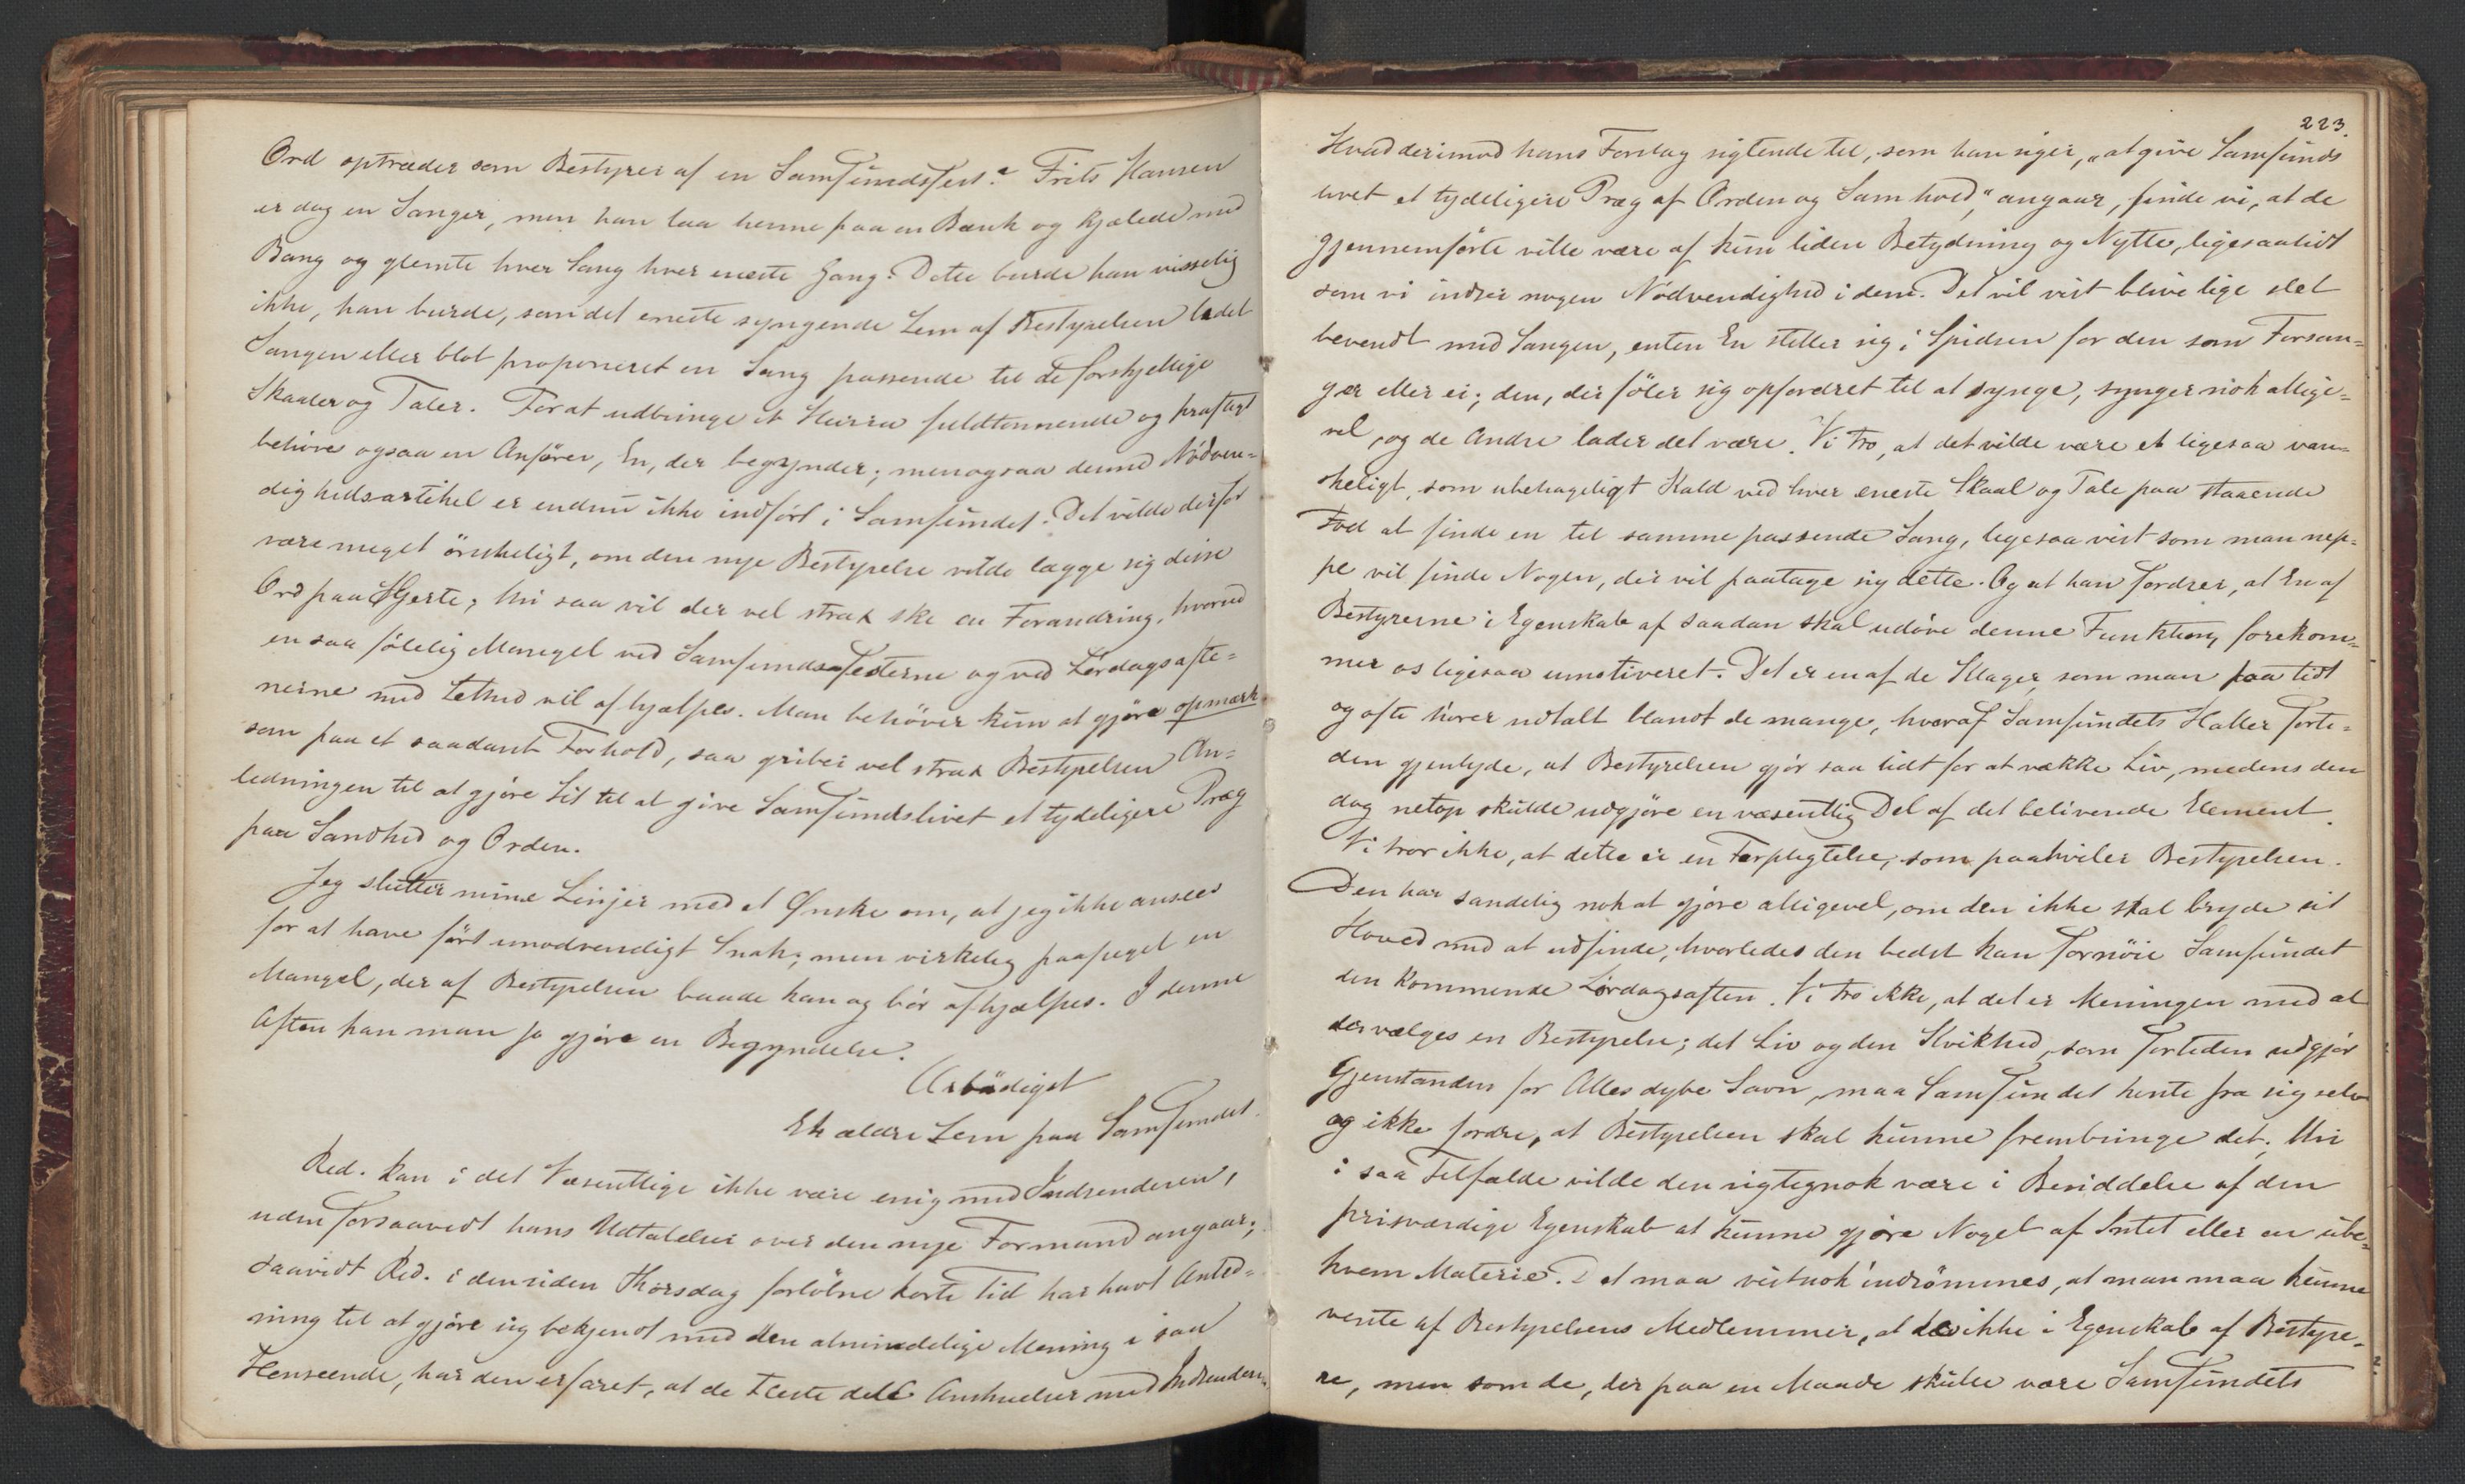 Ord optræder som Bestyrer af en Samfundsfest? Frits Hansen
er dog en Sanger, men han laa henne paa en Bænk og kjælede med
Bang og glemte hver Sang hver eneste Gang. Dette burde han visselig
ikke, han burde, som det eneste syngende Lem af Bestyrelsen ledet
Sangen eller blot proponeret en Sang passende til de forskjellige
Skaaler og Taler. For at udbringe et Hurra fuldttonnende og kraftigt
behøves ogsaa en Anfører, En, der begynder; men ogsaa denne Nødven=
dighedsartikel er endnu ikke indført i Samfundet. Det vilde derfor
være meget ønskeligt, om den nye Bestyrelse vilde lægge sig disse
Ord paa Hjerte; thi saa vil der vel strax ske en Forandring, hvorved
en saa følelig Mangel ved Samfundsfesterne og ved Lørdagsafte=
nerne med Lethed vil afhjælpes. Man behøver kun at gjøre opmærk
som paa et saadant Forhold, saa griber vel strax Bestyrelsen An=
ledningen til at gjøre Lit til at give Samfundslivet et tydeligere Præg
paa Sandhed og Orden.
Jeg slutter mine Linjer med et Ønske om, at jeg ikke ansees
for at have ført unødvendigt Snak; men virkelig paapeget en
Mangel, der af Bestyrelsen baade kan og bør afhjælpes. I denne
Aften kan man jo gjøre en Begyndelse.
Ærbødigst
Et ældre Lem paa Samfundet.
Red. kan i det Væsentlige ikke være enig med Indsenderen,
uden forsaavidt hans Udtalelser over den nye Formand angaar;
saavidt Red. i den siden Thorsdag forløbne korte Tid har havt Anled=
ning til at gjøre sig bekjendt med den almindelige Mening i saa
Henseende, har den erfaret, at de Fleste dele Anskuelser med Indsenderen.
223.
Hvad derimod hans Forslag sigtende til, som han siger, "at give Samfunds
livet et tydeligere Præg af Orden og Samhold," angaar, finde vi, at de
gjennemførte ville være af kun liden Betydning og Nytte, ligesaalidt
som vi indser nogen Nødvendighed i dem. Det vil vist blive lige slet
bevendt med Sangen, enten En stiller sig i Spidsen for den som Forsan=
ger eller ei; den, der føler sig opfordret til at synge, synger nok allige=
vel, og de Andre lader det være. Vi tro, at det vilde være et ligesaa van=
skeligt, som ubehageligt Kald ved hver eneste Skaal og Tale paa staaende
Fod at finde en til samme passende Sang, ligesaa vist som man nep=
pe vil finde Nogen, der vil paatage sig dette. Og at han fordrer, at En af
Bestyrerne i Egenskab af saadan skal udøve denne Funktion, forekom=
mer os ligesaa umotiveret. Det er en af de Klager, som man saa tidt
og ofte hører udtalt blandt de mange, hvoraf Samfundets Haller forti=
den gjenlyde, at Bestyrelsen gjør saa lidt for at vække Liv, medens den
dog netop skulde udgjøre en væsentlig Del af det belivende Element.
Vi tror ikke, at dette er en Forpligtelse, som paahviler Bestyrelsen.
Den har sandelig nok at gjøre alligevel, om den ikke skal bryde sit
Hoved med at udfinde, hvorledes den bedst kan fornøie Samfundet
den kommende Lørdagsaften. Vi tro ikke, at det er Meningen med at
der vælges en Bestyrelse; det Liv og den Kvikhed, som fortiden udgjør
Gjenstanden for Alles dybe Savn, maa Samfundet hente fra sig selv
og ikke fordre, at Bestyrelsen skal kunne frembringe det. Thi
i saa Tilfælde vilde den rigtignok være i Besiddelse af den
prisværdige Egenskab at kunne gjøre Noget af Intet eller en ube=
kvem Materie. Det maa vistnok indrømmes, at man maa kunne
vente af Bestyrelsens Medlemmer, at de ikke i Egenskab af Bestyre=
re, men som de, der paa en Maade skulle være Samfundets